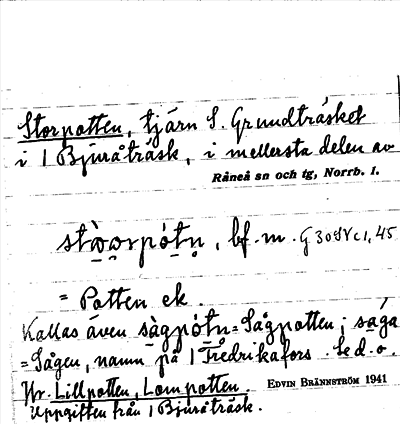 Storpotten, tjärn S. Grundträsket
i 1 Bjuråträsk, i mellersta delen av
Råneå sn och tg, Norrb. l.
stò̱o̱rpótṇ, bf. m. G 30 SV c1, 45
= Potten ek.
Kallas även sàgpótn = Sågpotten; sága
= Sågen, namn på 1 Fredrikafors. Se d. o.
Hr. Lillpotten, Lompotten. EDVIN BRÄNNSTRÖM 1941
Uppgiften från 1 Bjuråträsk.